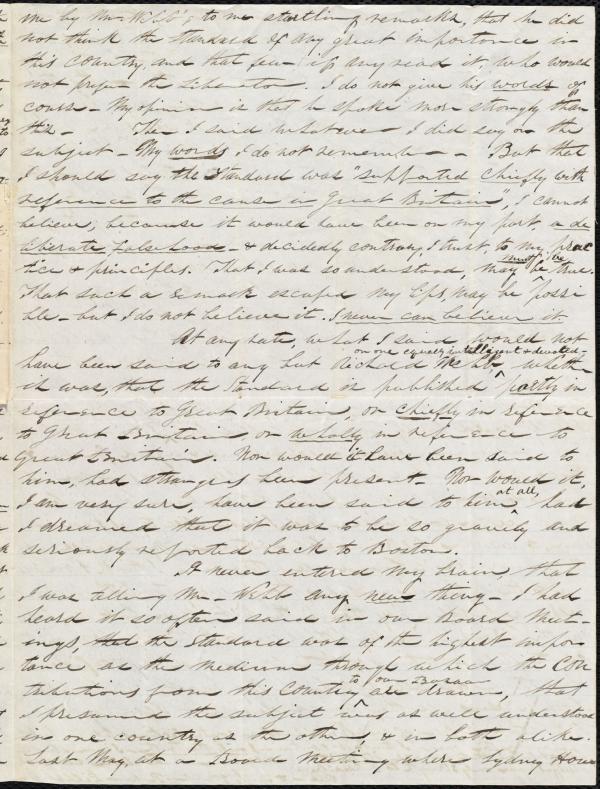 me by Mr. Webb's to me startling remarks, that he did
not think the Standard of any great importance in
this country, and that few – if any read it, who would
not prefer the Liberator. I do not give his words of
course – My opinion is that he spoke more strongly than
this – Then I said whatever I did say on the
subject – My words I do not remember – But that
I should say the Standard was "supported chiefly with
reference to the cause in Great Britain", I cannot
believe; because it would have been on my part, a de
liberate falsehood – & decidedly contrary, I trust, to my prac
tice & principles. That I was so understood, may be true.
must be
That such a remark escaped my lips, may be possi
ble – but I do not believe it. I never can believe it
At any rate, what I said, would not
on one equally intelligent & devoted –
have been said to any but Richard Webb, whether
it was, that the Standard is published partly in
reference to Great Britain, or chiefly in reference
to Great Britain, or wholly in reference to
Great Britain. Nor would it have been said to
him, had strangers been present – Nor would it,
I am very sure, have been said to him, at all, had
I dreamed that it was to be so gravely and
seriously reported back to Boston.
It never entered my brain, that
I was telling Mr – Webb any new thing – I had
heard it so often said in our Board Meet-
ings, that the Standard was of the highest impor-
tance as the medium through which the Con
tributions from this Country to our Bazaar are drawn, that
I presumed the subject was as well understood
in one country as the other, & in both alike.
Last May, at a Board Meeting where Sydney Howe